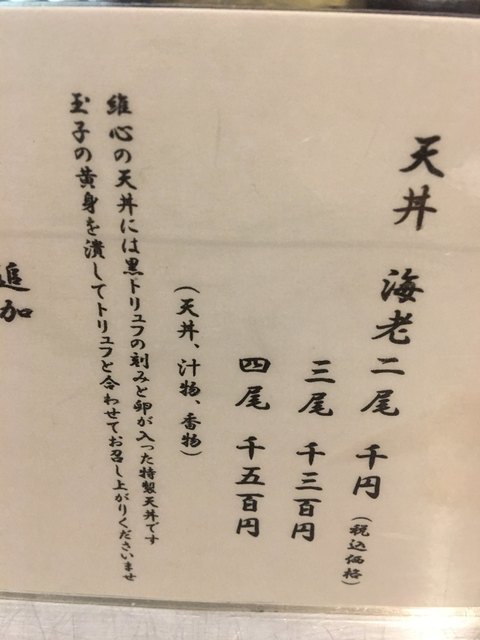 天丼 海老二尾 千円(税込価格)
三尾 千三百円
四尾 千五百円
(天丼、汁物、香物)
維心の天丼には黒トリュフの刻みと卵が入った特製天丼です
玉子の黄身を潰してトリュフと合わせてお召し上がりくださいませ
追加